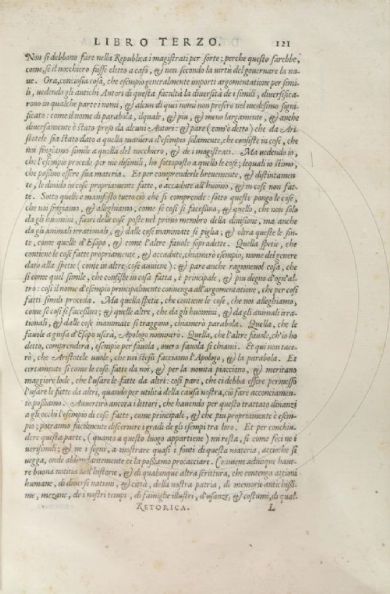 LIBRO TERZO. 121
Non si debbono fare nella Republica i magistrati per sorte; perche questo sarebbe,
come, se il nocchiero fusse eletto a caso, & non secondo la virtù del governare la na-
ue. Ora, con cio sia cosa, che esempio generalmente importi argomentatione per simi-
li, uedendo gli antichi Autori di questa facultà la diuersità de i simili, diuersifica-
rono in qualche parte i nomi, & alcun di quei nomi non presero nel medesimo signi-
ficato: come il nome di parabola, ilquale, & più, & meno largamente, & anche
diuersamente è stato preso da alcuni Autori: & pare (com'è detto) che da Ari-
stotele sia stato dato a quella maniera d'esempio solamente, che consiste ne i casi, che
noi fingiamo simili a quella del nocchiero, & de i magistrati. Ma uedendo io,
che l'esempio procede per uie de simili, ho sottoposto a quello le cose, lequali io stimo,
che possino essere sua materia. Et per comprenderle breuemente, & distintamen-
te, le diuido in cose propriamente fatte, o accadute all'huomo, & in cose non fat-
te. Sotto quelle è manifesto tutto ciò che si comprende: sotto queste pongo le cose,
che noi fingiamo, & alleghiamo, come se così si facessino, & quelle, che non solo
da gli huomini, fuori delle cose poste nel primo membro della diuisione, ma anche
da gli animali irrationali, & dalle cose inanimate si piglia; & oltra queste le fin-
te, come quelle d'Esopo, & come l'altre fauole sopradette. Quella spetie, che
contiene le cose fatte propriamente, & accadute, chiamerò esempio, nome del genere
dato alla spetie (come in altre cose auuiene) & pare anche ragioneuol cosa, che
si come quel simile, che consiste in cosa fatta, è principale, & più degno d'ogn'al-
tro: così il nome d'esempio principalmente conuenga all'argomentatione, che per cosi
fatti simili proceda. Ma quella spetie, che contiene le cose, che noi alleghiamo,
come se così si facessino; & quelle altre, che da gli huomini, & da gli animali irra-
tionali, & dalle cose inanimate si traggono, chiamerò parabola. Quella, che le
fauole a guisa d'Esopo userà, Apologo nominerò. Quella, che l'altre fauole, ch'io ho
detto, comprenderà, esempio per fauola, ouero fauola si chiami. Et qui non tace-
rò, che Aristotele uuole, che noi stessi facciamo l'Apologo, & la parabola. Et
certamente si come le cose fatte da noi, & per la nouità piacciono, & meritano
maggior lode, che l'usare le fatte da altri: così pare, che ci debba essere permesso
l'usare le fatte da altri, quando per utilità della causa nostra, ciò fare acconciamen-
te possiamo. Auuertirò ancora i lettori, che hauendo per questo trattato dinanzi
a gli occhi l'esempio di cose fatte, come principale, & che più propriamente è esem-
pio; potranno facilmente discernere i gradi de gli esempi tra loro. Et per conchiu-
dere questa parte, (quanto a questo luogo appartiene) mi resta, si come feci ne i
uerisimili, & ne i segni, a mostrare quasi i fonti di questa materia, accioche si
uegga, onde abbondantemente ce la possiamo procacciare. Conuiene adunque haue-
re buona notitia dell'historie, & di qualunque altra scrittura, che contenga attioni
humane, di diuerse nationi, & città, della nostra patria, di memorie antichissi-
me, mezane, de i nostri tempi, di famiglie illustri, d'usanze, & costumi, di qual-
RETORICA. L